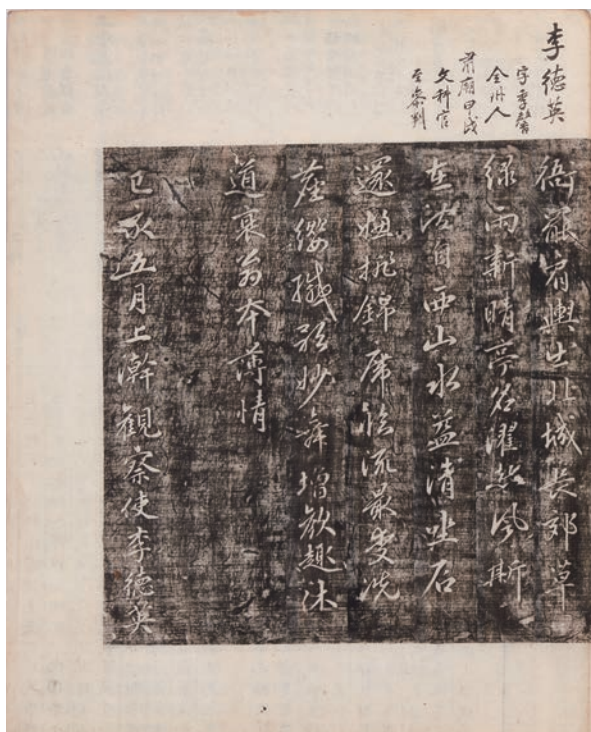 李德英
字季馨
全州人
肅廟甲戌
文科官
至參判
衙罷肩輿出北城長郊草
綠雨新晴亭名濯熱風斯
在派自西山水益清坐石
還嫌排錦席臨流最愛洗
塵纓纖歌妙舞增歡趣休
道衰翁本薄情
己亥五月上澣觀察使李德英